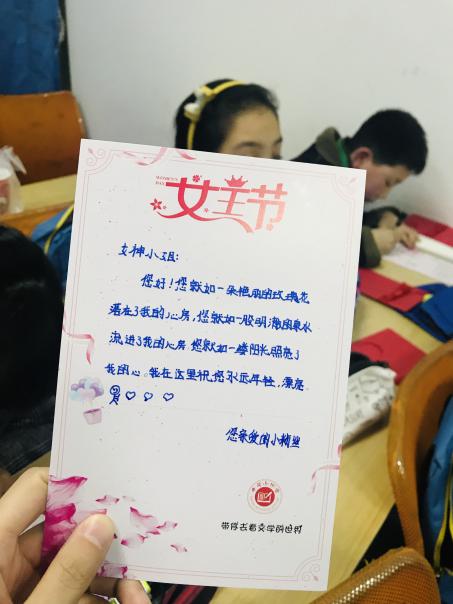 WOMEN'S
DAY
女王节
女神小姐:
您好!您就如一朵艳丽的玫瑰花
落在了我的心房,您就如一股明澈的泉水
流进了我的心房 您就如一缕阳光照亮了
我的心。我在这里祝您永远年轻,漂亮
您亲爱的小精灵
带你去看文学的世界